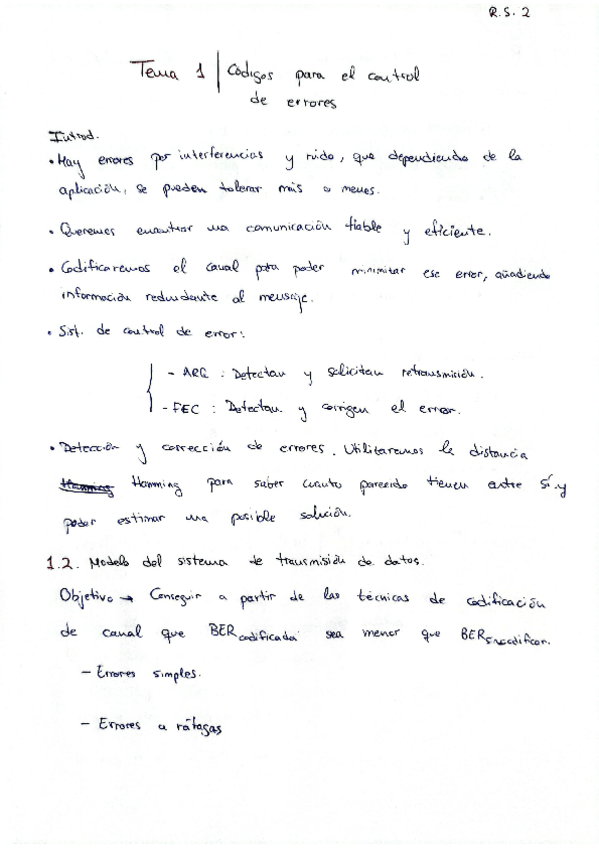 R.S. 2
Tema 1 | Códigos para el control
de errores
Introd.
• Hay errores por interferencias y ruido, que dependiendo de la
aplicación, se pueden tolerar más o menos.
• Queremos encontrar una comunicación fiable y eficiente.
• Codificaremos el canal para poder minimizar ese error, añadiendo
información redundante al mensaje.
• Sist. de control de error:
- ARQ : Detectan y solicitan retransmisión.
- FEC : Detectan y corrigen el error.
• Detección y corrección de errores. Utilizaremos la distancia
Hamming Hamming para saber cuanto parecido tienen entre sí y
poder estimar una posible solución.
1.2. Modelo del sistema de transmisión de datos.
Objetivo → Conseguir a partir de las técnicas de codificación
de canal que BER codificada sea menor que BER sin codificar.
- Errores simples.
- Errores a ráfagas